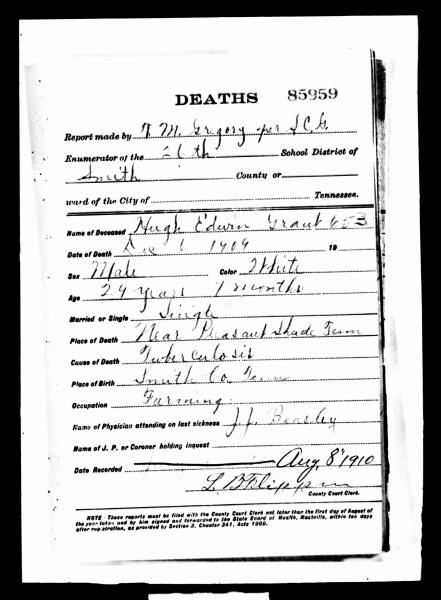 DEATHS 85959
Report made by T. M. Gregory per S.C.G.
Enumerator of the 26th School District of
Smith County or
ward of the City of Tennessee.
Name of Deceased Hugh Edwin Grant 653
Date of Death Dec 1909 19
Sex Male Color White
Age 24 years 7 months
Married or Single Single
Place of Death Near Pleasant Shade Tenn
Cause of Death Tuberculosis
Place of Birth Smith Co. Tenn
Occupation Farming
Name of Physician attending on last sickness J.J. Beasley
Name of J. P. or Coroner holding inquest
Date Recorded Aug. 8" 1910
L. B. Flippin
County Court Clerk.
NOTE These reports must be filed with the County Court Clerk not later than the first day of August of
the year taken and by him signed and forwarded to the State Board of Health, Nashville, within ten days
after registration, as provided by Section 3, Chapter 341, Acts 1909.